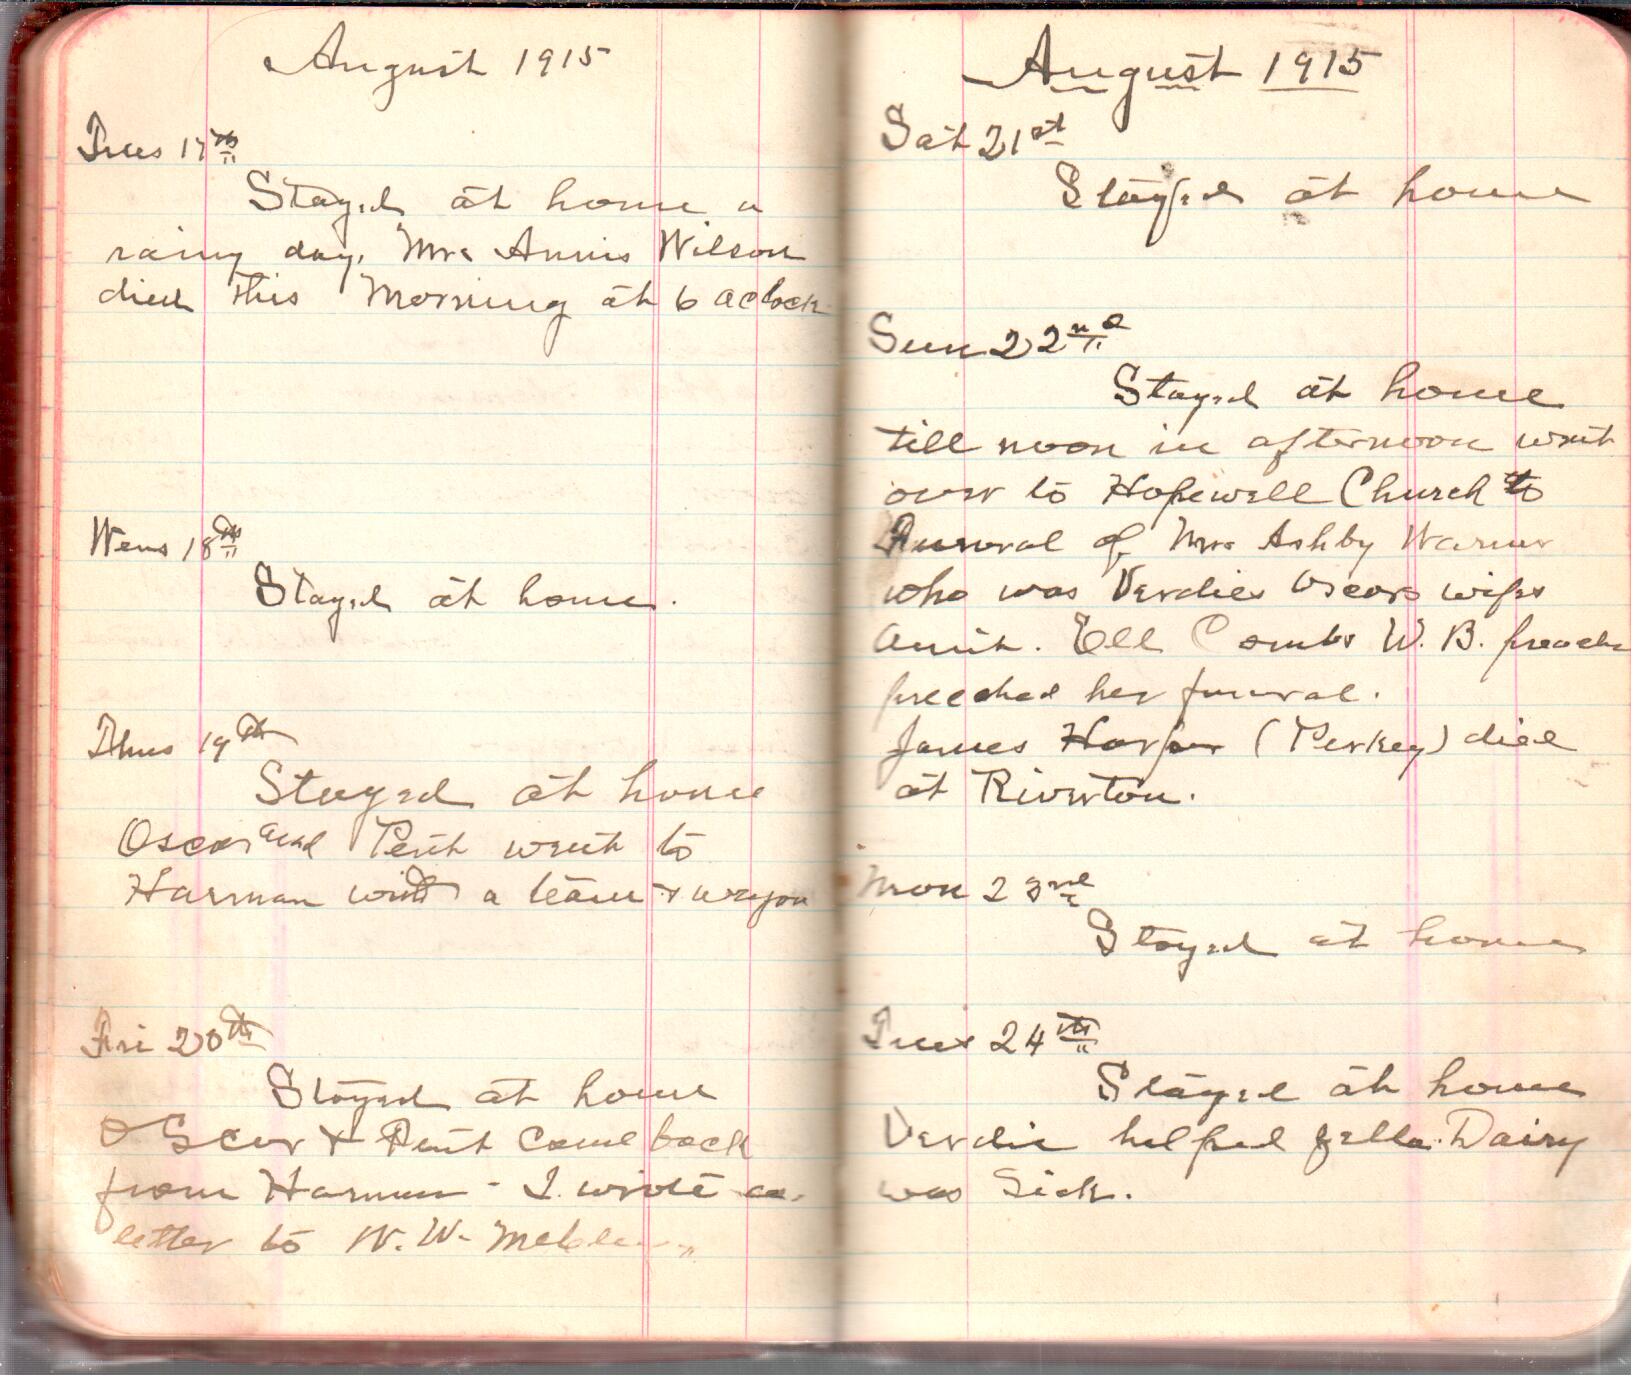 August 1915
Tues 17th
Stayed at home a
rainy day, Mrs Annis Wilson
died this Morning at 6 aclock
Wens 18th
Stayed at home.
Thus 19th
Stayed at home
Oscar and Pent went to
Harman with a team & wagon
Fri 20th
Stayed at home
Oscar & Pent come back
from Harman - I wrote a
letter to W. W.
August 1915
Sat 21st
Stayed at home
Sun 22nd
Stayed at home
till noon in afternoon went
over to Hopewell Church to
Funeral of Mrs Ashby Warner
who was Verdies Oscars wifes
aunt. Ell Combs W. B. preach
preeched her funeral.
James Harper (Perkey) died
at Riverton.
Mon 23rd
Stayed at home
Tues 24th
Stayed at home
Verdie helped Zella. Dairy
was Sick.